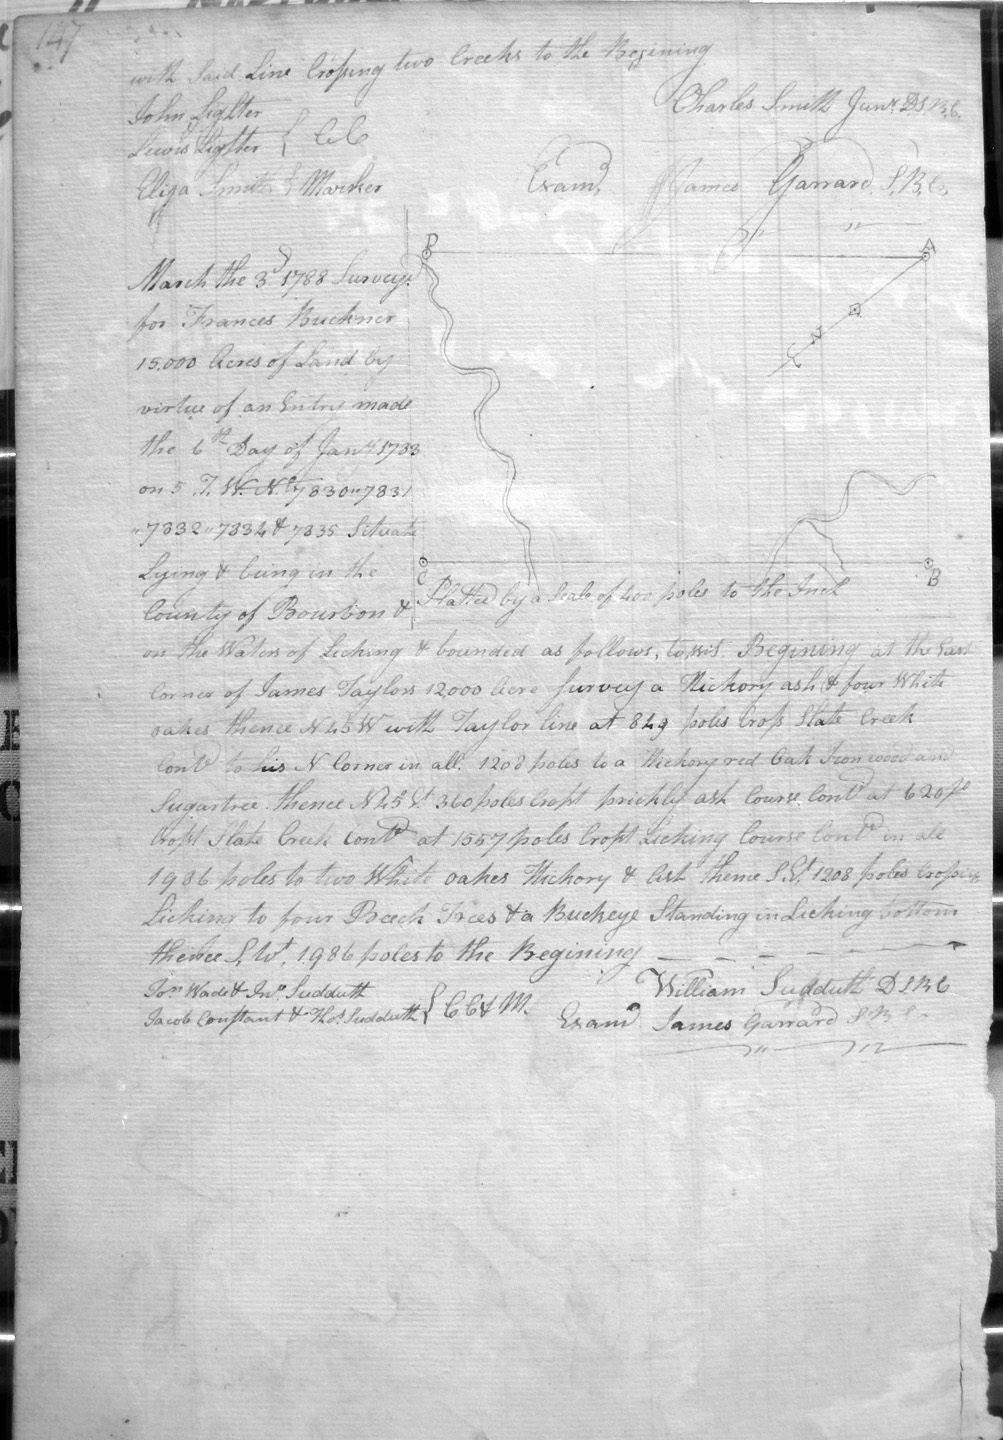 147
with Said Line Crossing two Creeks to the Begining
Charles Smith Junr. D.S.B.C.
John Lighter
Lewis Lighter } C C
Elija Smith } Marker
Examd. James Garrard S.B.C.
D
A
N
March the 3d. 1788 Surveyd.
for Frances Buckner
15.000 Acres of Land by
virtue of an Entry made
the 6th Day of Jany 1783
on 5 T. W. No. 7830 " 7831
" 7832 " 7834 & 7835 Situate
Lying & being in the
County of Bourbon &
C
B
Platted by a Scale of 400 poles to the Inch
on the Waters of Licking & bounded as follows, to wit. Begining at the East
Corner of James Taylors 12000 Acre Survey a Hickory ash & four White
oakes thence N 45 W with Taylor line at 849 poles Cross Slate Creek
Contd to his N Corner in all. 1208 poles to a Hickory red Oak Ironwood and
Sugartree thence N 45 Et. 360 poles Crost prickly ash Course Contd at 620 po
Crost Slate Creek Contd at 1557 poles Crost Licking Course Contd in all
1986 poles to two White oakes Hickory & Ash thence S.Et. 1208 poles Crossing
Licking to four Beech Trees & a Buckeye Standing in Licking bottom
thence S. Wt. 1986 poles to the Begining
Wade & Jno. Sudduth
Jacob Constant & Thos. Sudduth } C C & M.
William Sudduth D S B C
Examd James Garrard S B C